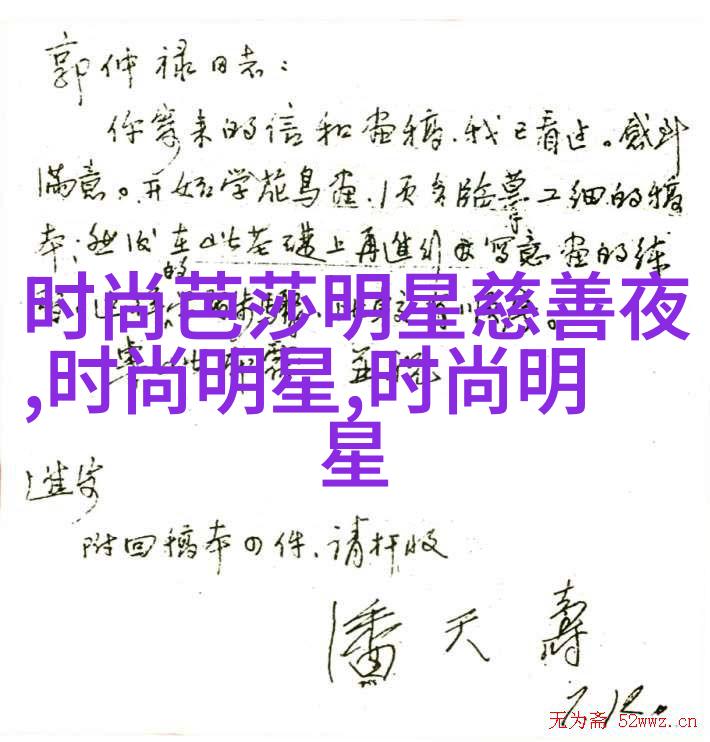 郭仲禄同志：
你寄来的信和画稿，我已看过。感到
满意。开始学花鸟画，须多临摹工细的稿
本；然后在此基础上再进行写意画的练
时尚芭莎明星慈善夜
,时尚明星,时尚明
星
进安
附回稿本四件，请检收
潘天寿
7.12.
无为斋 52wwz.cn